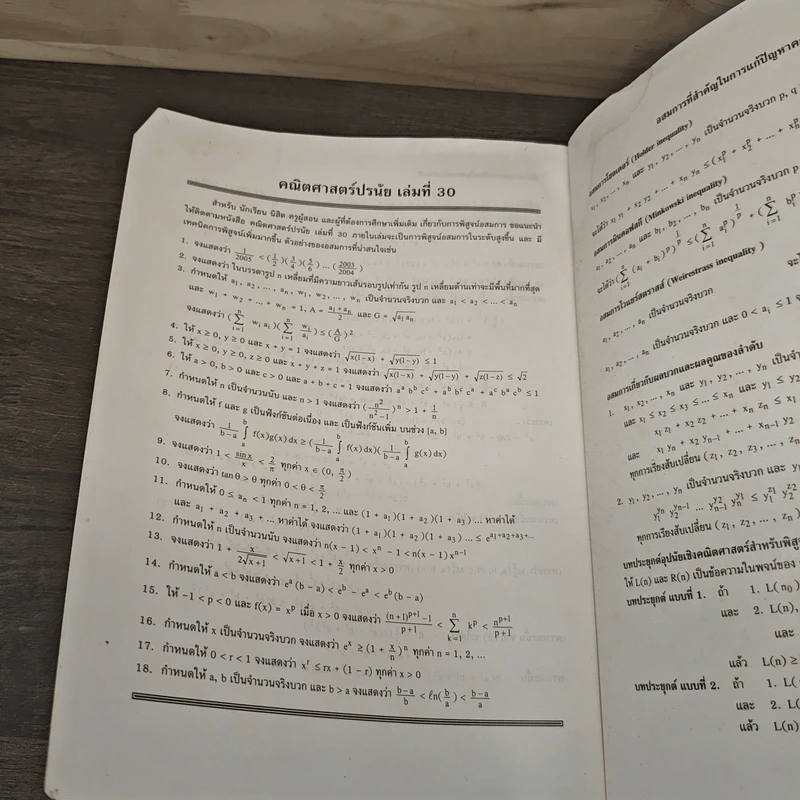 คณิตศาสตร์ปรนัย เล่มที่ 30
สำหรับ นักเรียน นิสิต ครูผู้สอน และผู้ที่ต้องการศึกษาเพิ่มเติม เกี่ยวกับการพิสูจน์อสมการ ขอแนะนำ
ให้ติดตามหนังสือ คณิตศาสตร์ปรนัย เล่มที่ 30 ภายในเล่มจะเป็นการพิสูจน์อสมการในระดับสูงขึ้น และ มี
เทคนิคการพิสูจน์เพิ่มมากขึ้น ตัวอย่างของอสมการที่น่าสนใจเช่น
1. จงแสดงว่า 1/2005 < (1/2)(3/4)(5/6) ... (2003/2004)
2. จงแสดงว่า ในบรรดารูป n เหลี่ยมที่มีความยาวเส้นรอบรูปเท่ากัน รูป n เหลี่ยมด้านเท่าจะมีพื้นที่มากที่สุด
3. กำหนดให้ a₁, a₂, ..., aₙ, w₁, w₂, ..., wₙ เป็นจำนวนจริงบวก และ a₁ < a₂ < ... < aₙ
และ w₁ + w₂ + ... + wₙ = 1, A = (a₁+aₙ)/2 และ G = √(a₁aₙ)
จงแสดงว่า (Σᵢ₌₁ⁿ wᵢaᵢ)(Σᵢ₌₁ⁿ wᵢ/aᵢ) ≤ (A/G)²
4. ให้ x ≥ 0, y ≥ 0 และ x + y = 1 จงแสดงว่า √(x(1−x)) + √(y(1−y)) ≤ 1
5. ให้ x ≥ 0, y ≥ 0, z ≥ 0 และ x + y + z = 1 จงแสดงว่า √(x(1−x)) + √(y(1−y)) + √(z(1−z)) ≤ √2
6. ให้ a > 0, b > 0 และ c > 0 และ a + b + c = 1 จงแสดงว่า aᵃbᵇcᶜ + aᵇbᶜcᵃ + aᶜbᵃcᵇ ≤ 1
7. กำหนดให้ n เป็นจำนวนนับ และ n > 1 จงแสดงว่า (n²/(n²−1))ⁿ > 1 + 1/n
8. กำหนดให้ f และ g เป็นฟังก์ชันต่อเนื่อง และ เป็นฟังก์ชันเพิ่ม บนช่วง [a, b]
จงแสดงว่า 1/(b−a) ∫ₐᵇ f(x)g(x) dx ≥ (1/(b−a) ∫ₐᵇ f(x) dx)(1/(b−a) ∫ₐᵇ g(x) dx)
9. จงแสดงว่า 1 < sinx/x < 2/π ทุกค่า x ∈ (0, π/2)
10. จงแสดงว่า tan θ > θ ทุกค่า 0 < θ < π/2
11. กำหนดให้ 0 ≤ aₙ < 1 ทุกค่า n = 1, 2, ... และ (1 + a₁)(1 + a₂)(1 + a₃) ... หาค่าได้
และ a₁ + a₂ + a₃ + ... หาค่าได้ จงแสดงว่า (1 + a₁)(1 + a₂)(1 + a₃) ... ≤ e^(a₁+a₂+a₃+...)
12. กำหนดให้ n เป็นจำนวนนับ จงแสดงว่า n(x − 1) < xⁿ − 1 < n(x − 1)xⁿ⁻¹
13. จงแสดงว่า 1 + x/(2√(x+1)) < √(x+1) < 1 + x/2 ทุกค่า x > 0
14. กำหนดให้ a < b จงแสดงว่า eᵃ(b − a) < eᵇ − eᵃ < eᵇ(b − a)
15. ให้ −1 < p < 0 และ f(x) = xᵖ เมื่อ x > 0 จงแสดงว่า ((n+1)ᵖ⁺¹−1)/(p+1) < Σₖ₌₁ⁿ kᵖ < nᵖ⁺¹/(p+1)
16. กำหนดให้ x เป็นจำนวนจริงบวก จงแสดงว่า eˣ ≥ (1 + x/n)ⁿ ทุกค่า n = 1, 2, ...
17. กำหนดให้ 0 < r < 1 จงแสดงว่า xʳ ≤ rx + (1 − r) ทุกค่า x > 0
18. กำหนดให้ a, b เป็นจำนวนจริงบวก และ b > a จงแสดงว่า (b−a)/b < ℓn(b/a) < (b−a)/a
อสมการที่สำคัญในการแก้ปัญหา
อสมการโฮลเดอร์ (Holder inequality)
x₁, x₂, ..., xₙ และ y₁, y₂, ..., yₙ เป็นจำนวนจริงบวก p, q
จะได้ว่า x₁y₁ + x₂y₂ + ... + xₙyₙ ≤ (x₁ᵖ + x₂ᵖ + ... + xₙᵖ
อสมการมินคอฟสกี (Minkowski inequality)
a₁, a₂, ..., aₙ และ b₁, b₂, ..., bₙ เป็นจำนวนจริงบวก p
จะได้ว่า (Σᵢ₌₁ⁿ (aᵢ + bᵢ)ᵖ)^(1/p) ≤ (Σᵢ₌₁ⁿ aᵢᵖ)^(1/p) + (Σᵢ₌₁ⁿ bᵢᵖ
อสมการไวแยร์สตราสส์ (Weirestrass inequality)
a₁, a₂, ..., aₙ เป็นจำนวนจริงบวก
x₁, a₂, ..., aₙ เป็นจำนวนจริงบวก และ 0 < aᵢ ≤ 1
อสมการเกี่ยวกับผลบวกและผลคูณของลำดับ
1. x₁, x₂, ..., xₙ และ y₁, y₂, ..., yₙ เป็นจำ
และ x₁ ≤ x₂ ≤ x₃ ≤ ... ≤ xₙ และ y₁ ≤ y₂
x₁z₁ + x₂z₂ + ... + xₙzₙ ≤ x₁
และ x₁yₙ + x₂yₙ₋₁ + ... + xₙ₋₁y₂
ทุกการเรียงสับเปลี่ยน (z₁, z₂, z₃, ...,
2. y₁, y₂, ..., yₙ เป็นจำนวนจริงบวก และ y₁
ทุกการเรียงสับเปลี่ยน (z₁, z₂, ..., zₙ)
บทประยุกต์อุปนัยเชิงคณิตศาสตร์สำหรับพิสู
ให้ L(n) และ R(n) เป็นข้อความในพจน์ของ
บทประยุกต์ แบบที่ 1. ถ้า 1. L(n₀)
และ 2. L(n),
และ
แล้ว L(n) ≥
บทประยุกต์ แบบที่ 2. ถ้า 1. L(
และ 2. L(
แล้ว L(n)